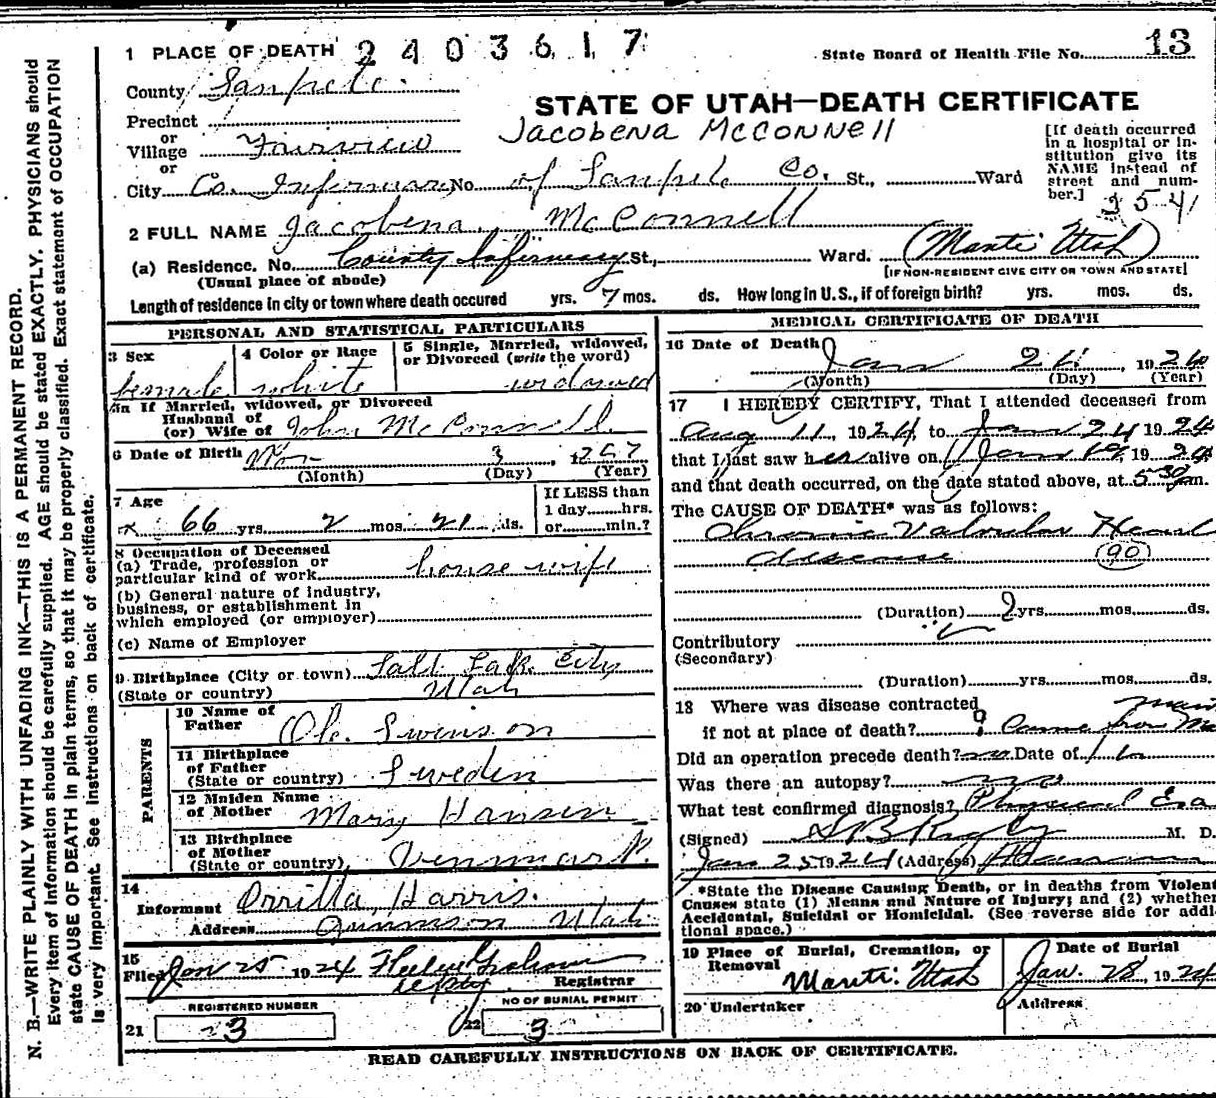 N. B.—WRITE PLAINLY WITH UNFADING INK—THIS IS A PERMANENT RECORD.
Every item of information should be carefully supplied. AGE should be stated EXACTLY. PHYSICIANS should
state CAUSE OF DEATH in plain terms, so that it may be properly classified. Exact statement of OCCUPATION
is very important. See instructions on back of certificate.
1 PLACE OF DEATH 2403617
State Board of Health File No. 13
County Sanpete
STATE OF UTAH—DEATH CERTIFICATE
Precinct
or
Village Fairview
or
Jacobena McConnell
City Co. Infirmary No. of Sanpete Co. St., Ward
[If death occurred in a hospital or institution give its NAME instead of street and number.]
2 FULL NAME Jacobena McConnell
(a) Residence. No. County Infirmary St., Ward. (Manti Utah)
(Usual place of abode) [IF NON-RESIDENT GIVE CITY OR TOWN AND STATE]
Length of residence in city or town where death occured yrs. 7 mos. ds. How long in U. S., if of foreign birth? yrs. mos. ds.
PERSONAL AND STATISTICAL PARTICULARS
3 Sex female
4 Color or Race white
5 Single, Married, widowed, or Divorced (write the word) widowed
5a If Married, widowed, or Divorced
Husband of
(or) Wife of John McConnell
6 Date of Birth Nov 3, 1857
(Month) (Day) (Year)
7 Age 66 yrs. 2 mos. 21 ds.
If LESS than 1 day......hrs. or......min.?
8 Occupation of Deceased
(a) Trade, profession or particular kind of work housewife
(b) General nature of industry, business, or establishment in which employed (or employer)
(c) Name of Employer
9 Birthplace (City or town) Salt Lake City
(State or country) Utah
PARENTS
10 Name of Father Ole Swenson
11 Birthplace of Father (State or country) Sweden
12 Maiden Name of Mother Mary Hansen
13 Birthplace of Mother (State or country) Denmark
14
Informant Orrilla Harris
Address Gunnison Utah
15
Filed Jan 25 1924
Registrar
REGISTERED NUMBER
21 3
NO OF BURIAL PERMIT
22 3
MEDICAL CERTIFICATE OF DEATH
16 Date of Death Jan 24, 1924
(Month) (Day) (Year)
17 I HEREBY CERTIFY, That I attended deceased from
Aug 11, 1924, to Jan 24 1924
that I last saw her alive on Jan 19, 1924
and that death occurred, on the date stated above, at 5 30 m.
The CAUSE OF DEATH* was as follows:
Chronic Valvular Heart
disease 90
(Duration) 2 yrs. mos. ds.
Contributory
(Secondary)
(Duration) yrs. mos. ds.
18 Where was disease contracted
if not at place of death? Came from
Did an operation precede death? no Date of
Was there an autopsy? no
What test confirmed diagnosis? Physical Exa
(Signed) M. D.
Jan 25 1924 (Address)
*State the Disease Causing Death, or in deaths from Violent
Causes state (1) Means and Nature of Injury; and (2) whether
Accidental, Suicidal or Homicidal. (See reverse side for addi-
tional space.)
19 Place of Burial, Cremation, or Removal Manti Utah
Date of Burial Jan. 28, 1924
20 Undertaker
Address
READ CAREFULLY INSTRUCTIONS ON BACK OF CERTIFICATE.